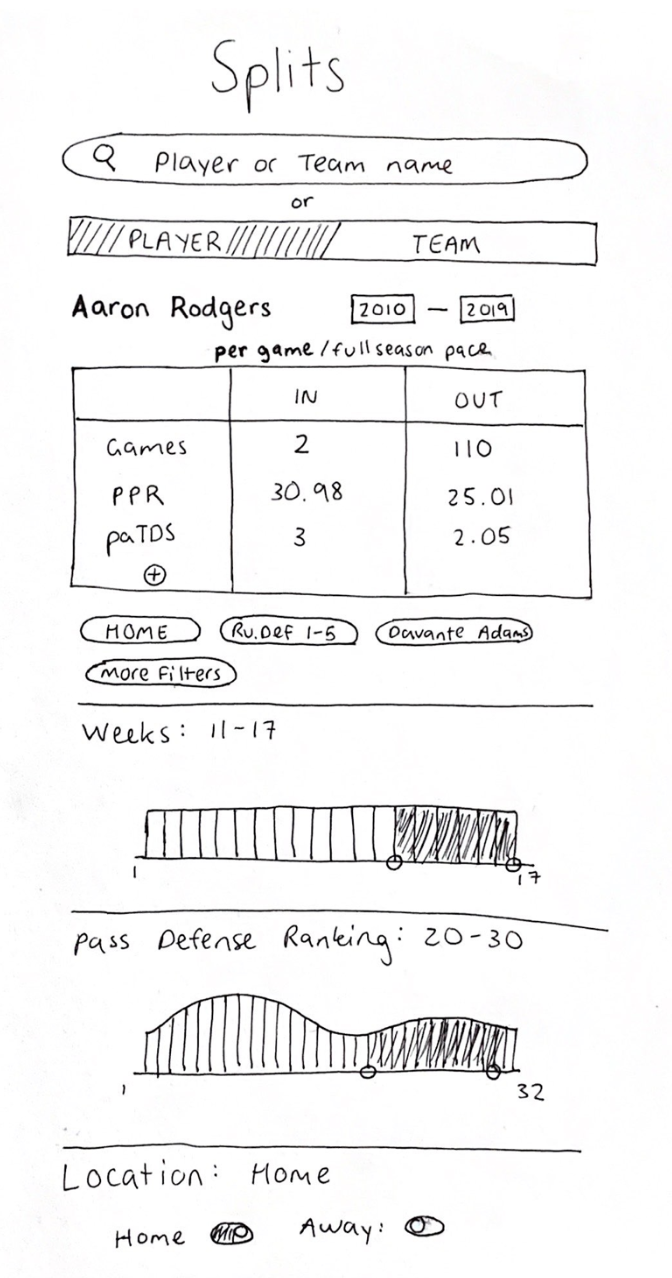 Splits
Player or Team name
or
PLAYER TEAM
Aaron Rodgers 2010 - 2019
per game/full season pace
IN OUT
Games 2 110
PPR 30.98 25.01
paTDS 3 2.05
+
HOME Ru.Def 1-5 Davante Adams
More Filters
Weeks: 11-17
1 17
Pass Defense Ranking: 20-30
1 32
Location: Home
Home Away: